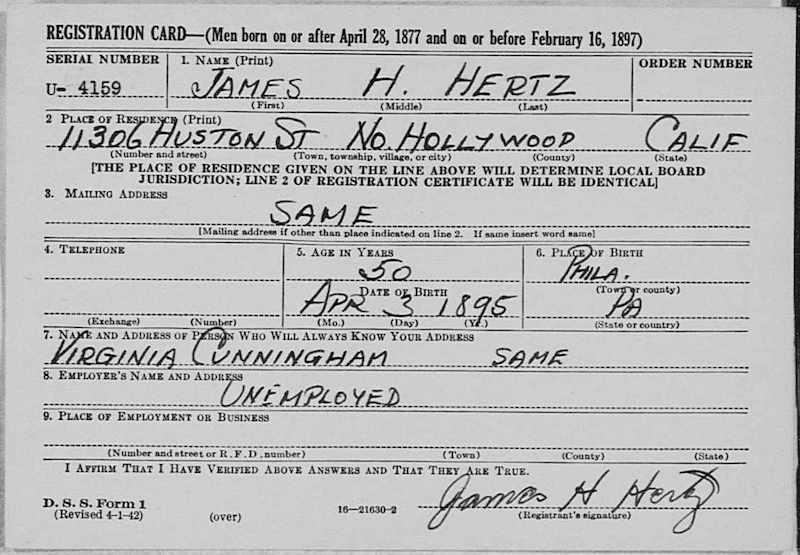 REGISTRATION CARD—(Men born on or after April 28, 1877 and on or before February 16, 1897)
SERIAL NUMBER 1. NAME (Print) ORDER NUMBER
U- 4159 JAMES H. HERTZ
(First) (Middle) (Last)
2 PLACE OF RESIDENCE (Print)
11306 HUSTON ST NO. HOLLYWOOD CALIF
(Number and street) (Town, township, village, or city) (County) (State)
[THE PLACE OF RESIDENCE GIVEN ON THE LINE ABOVE WILL DETERMINE LOCAL BOARD
JURISDICTION; LINE 2 OF REGISTRATION CERTIFICATE WILL BE IDENTICAL]
3. MAILING ADDRESS
SAME
[Mailing address if other than place indicated on line 2. If same insert word same]
4. TELEPHONE 5. AGE IN YEARS 6. PLACE OF BIRTH
50 PHILA.
DATE OF BIRTH (Town or county)
APR 3 1895 PA
(Exchange) (Number) (Mo.) (Day) (Yr.) (State or country)
7. NAME AND ADDRESS OF PERSON WHO WILL ALWAYS KNOW YOUR ADDRESS
VIRGINIA CUNNINGHAM SAME
8. EMPLOYER'S NAME AND ADDRESS
UNEMPLOYED
9. PLACE OF EMPLOYMENT OR BUSINESS
(Number and street or R. F. D. number) (Town) (County) (State)
I AFFIRM THAT I HAVE VERIFIED ABOVE ANSWERS AND THAT THEY ARE TRUE.
James H Hertz
D. S. S. Form 1
(Revised 4-1-42) (over) 16—21630-2 (Registrant's signature)